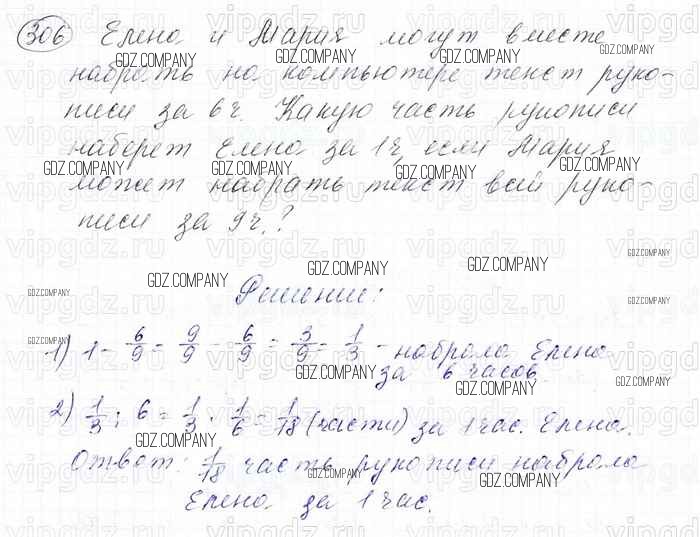 306 Елена и Мария могут вместе
набрать на компьютере текст руко-
писи за 6ч. Какую часть рукописи
наберет Елена за 1ч, если Мария
может набрать текст всей руко-
писи за 9ч.?
Решение:
1) 1 - 6/9 = 9/9 - 6/9 = 3/9 = 1/3 - набрала Елена
за 6 часов
2) 1/3 : 6 = 1/3 · 1/6 = 1/18 (части) за 1 час. Елена.
Ответ: 1/18 часть рукописи набрала
Елена за 1 час.